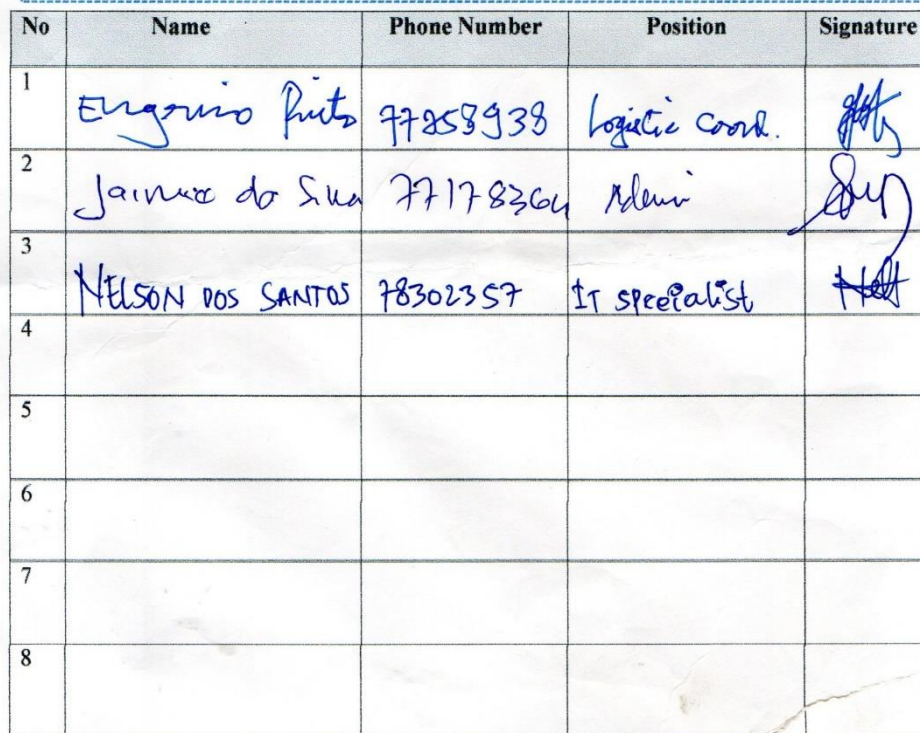 No Name Phone Number Position Signature
1
Eugenio Pinto 77258938 Logistic Coord.
2
da Silva 77178364
3
NELSON DOS SANTOS 78302357 IT specialist
4
5
6
7
8